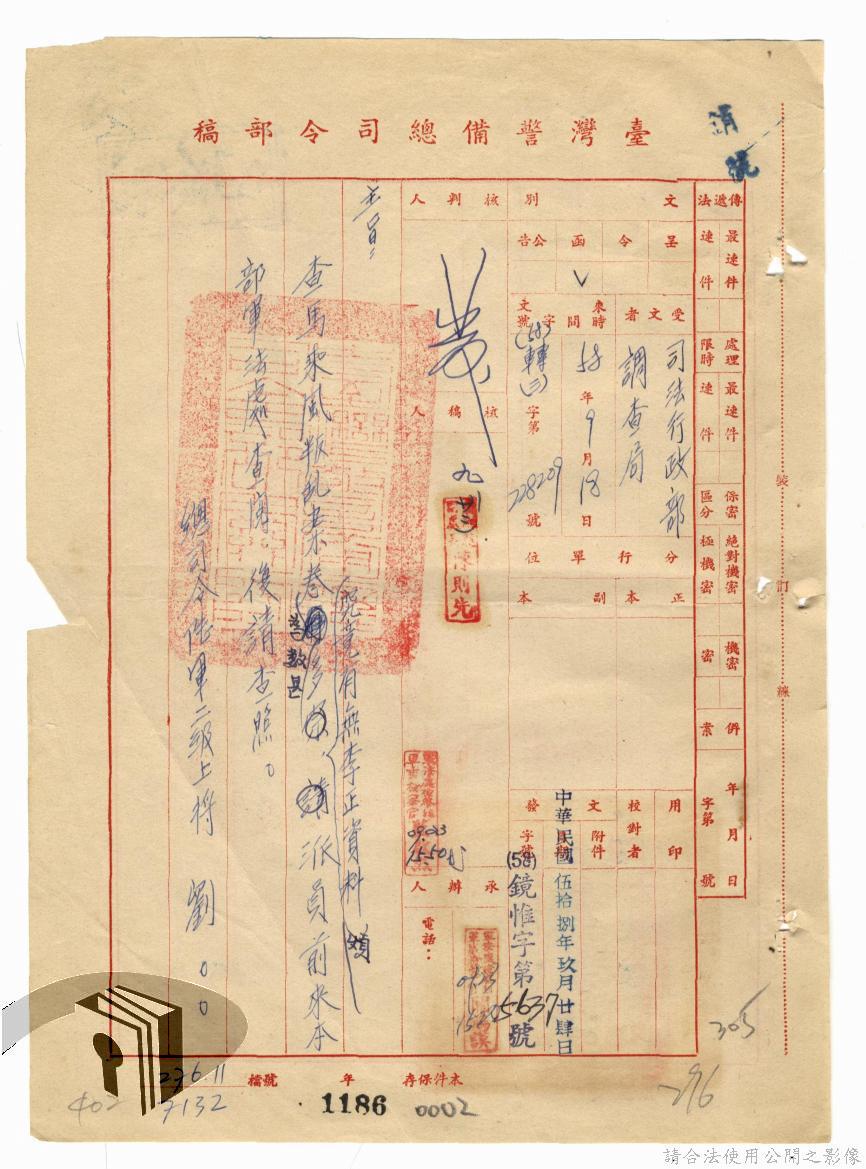 臺灣警備總司令部稿
銷號
傳遞法 最速件 速件
處理限時 最速件 速件
保密區分 絕對機密 極機密 機密 密
併案
年 月 日
字第 號
文別 呈 令 函 公告
V
受文者 司法行政部
調查局
來文 時間 58年9月18日
字號 (58)轉(三)字第228209號
分行單位 正本 副本
用印
校對者
附件
發文
中華民國伍拾捌年玖月廿肆日
(58)鏡惟字第5637號
核判人
核稿人
九
陳則先
09.23
15.50
承辦人
電話：
主旨
查馬乘風叛亂案卷數甚多
究竟有無李正資料 煩
請派員前來本
部軍法處查閱 復請查照。
總司令陸軍二級上將 劉〇〇
裝 訂 線
305
296
本件保存 年
檔號
276.11
7132
402
1186
0002
請合法使用公開之影像